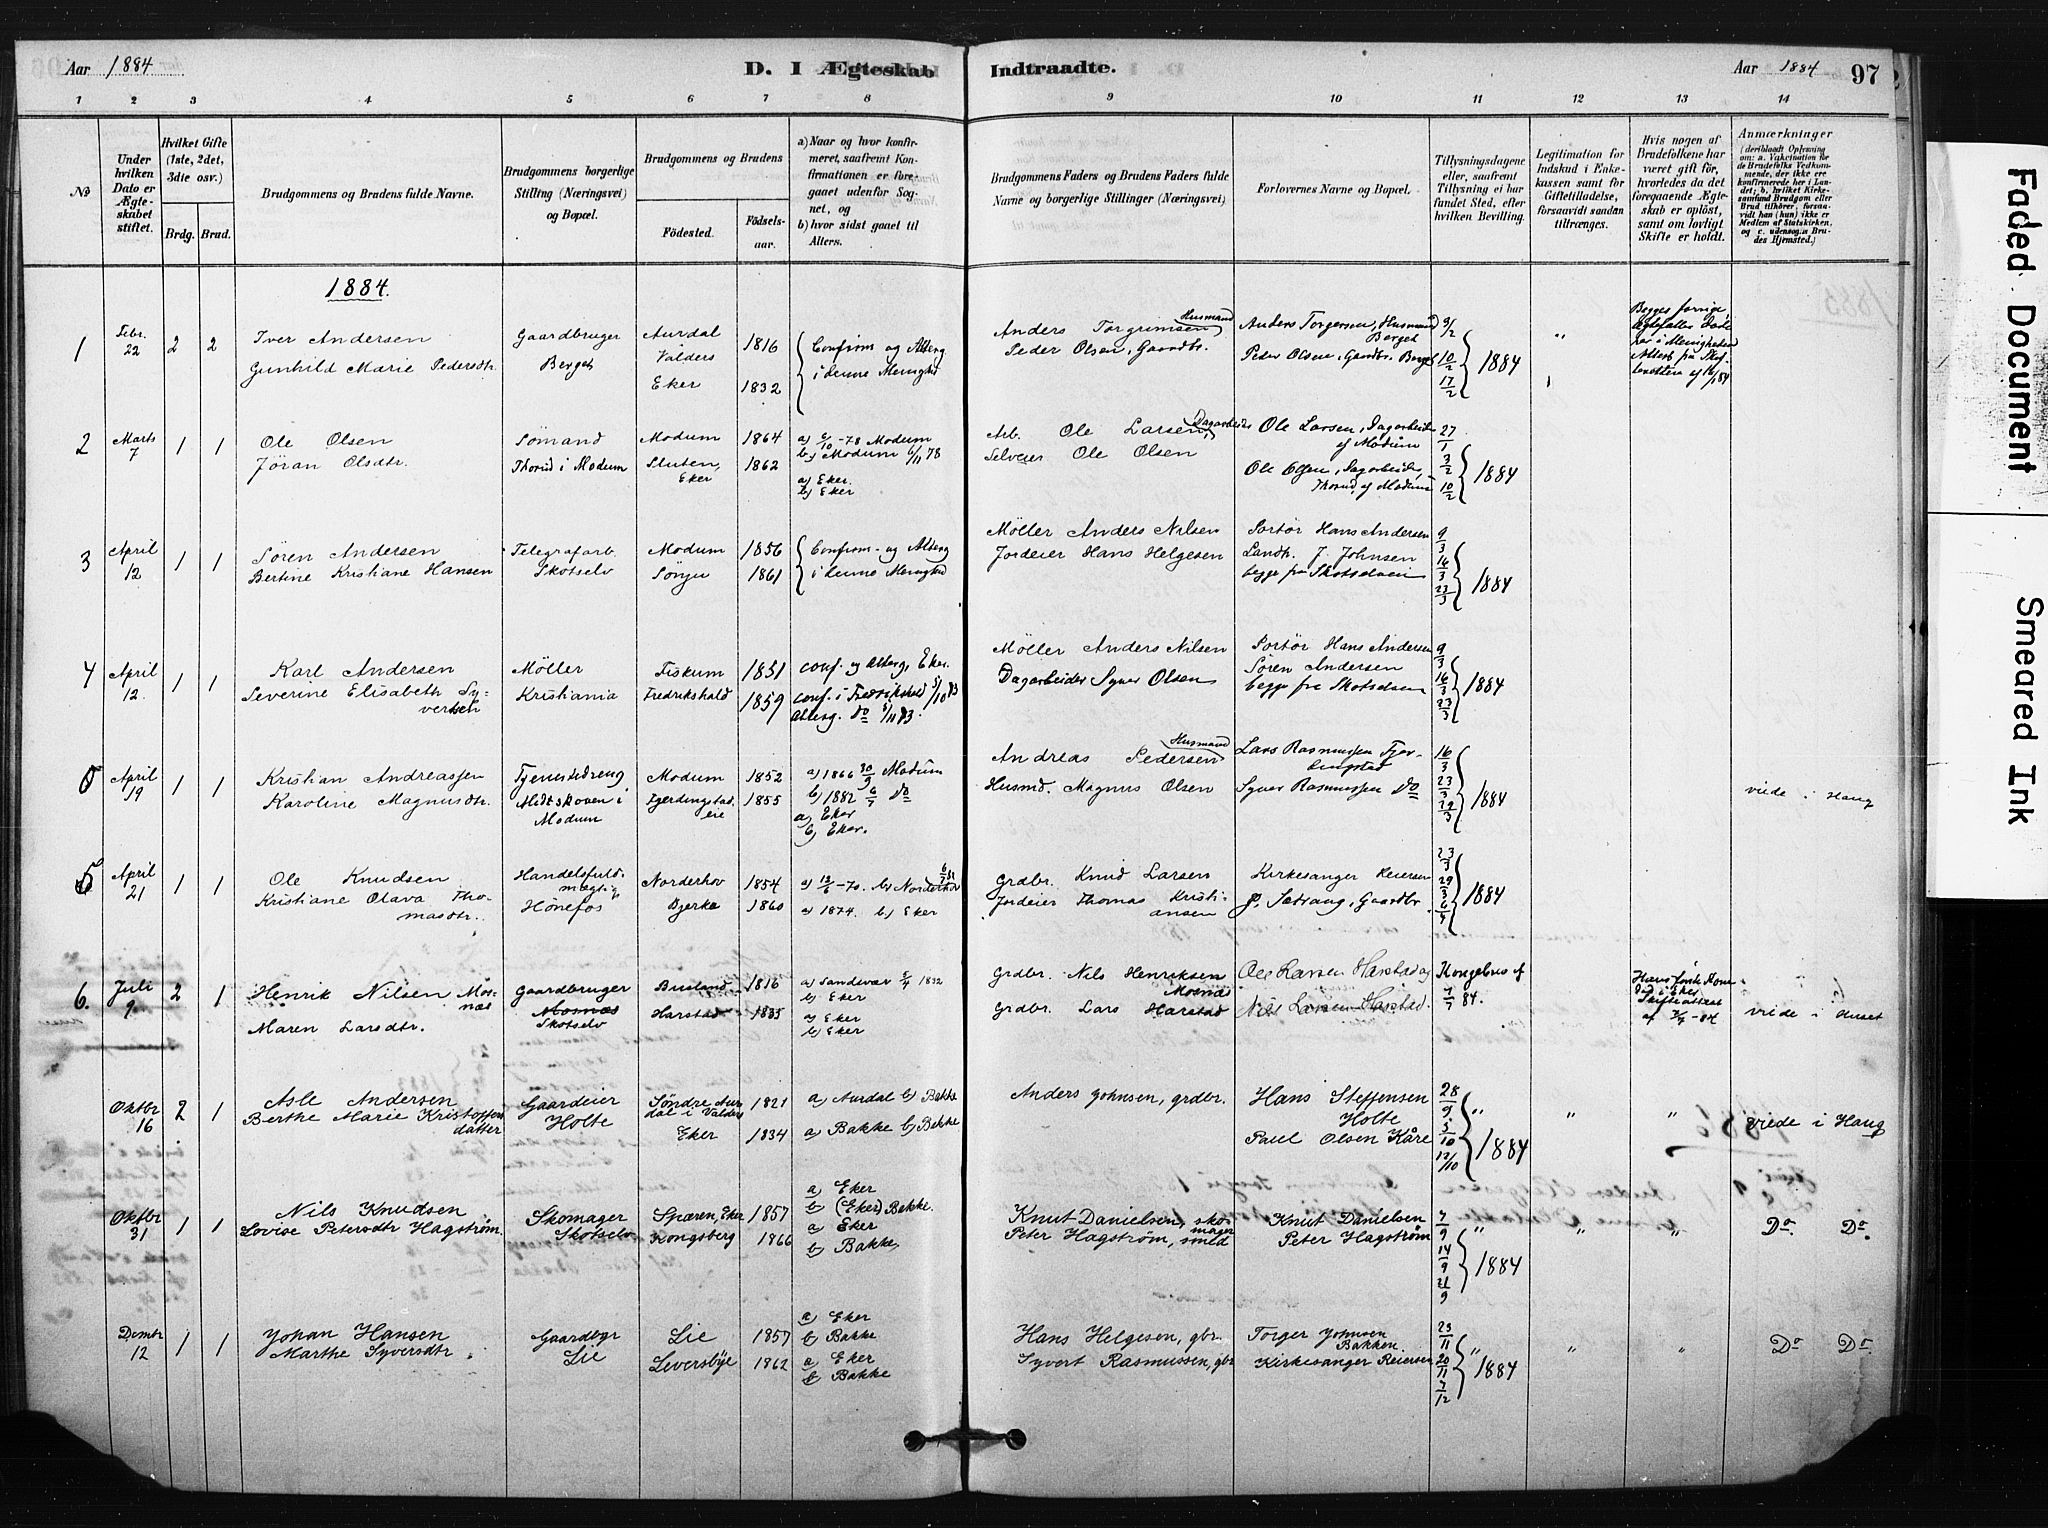 Aar 1884
D. I Ægteskab Indtraadte.
Aar 1884 97
1 2 3 4 5 6 7 8 9 10 11 12 13 14
No
Under hvilken Dato er Ægteskabet stiftet.
Hvilket Gifte (1ste, 2det, 3die osv.)
Brdg. Brud.
Brudgommens og Brudens fulde Navne.
Brudgommens borgerlige Stilling (Næringsvei) og Bopæl.
Brudgommens og Brudens
Fødested.
Fødselsaar.
a) Naar og hvor konfirmeret, saafremt Konfirmationen er foregaaet udenfor Sognet, og
b) hvor sidst gaaet til Alters.
Brudgommens Faders og Brudens Faders fulde Navne og borgerlige Stillinger (Næringsvei)
Forlovernes Navne og Bopæl.
Tillysningsdagene eller, saafremt Tillysning ei har fundet Sted, efter hvilken Bevilling.
Legitimation for Indskud i Enkekassen samt for Giftetilladelse, forsaavidt saadan tiltrænges.
Hvis nogen af Brudefolkene har været gift før, hvorledes da det foregaaende Ægteskab er opløst, samt om lovligt Skifte er holdt.
Anmærkninger
(deriblandt Oplysning om: a. Vakcination for de Brudefolks Vedkommende, der ikke ere konfirmerede her i Landet; b. hvilket Kirkesamfund Brudgom eller Brud tilhører, forsaavidt han (hun) ikke er Medlem af Statskirken, og c. udensogns Brudes Hjemsted.)
1884.
1 Febr. 22 2 2
Iver Andersen
Gunhild Marie Pedersdtr.
Gaardbruger
Berget
Aurdal Valders 1816
Eker 1832
Confirm og Alterg
i denne Menighed
Anders Torgrimsen, Husmand
Peder Olsen, Gaardbr.
Anders Torgersen, Husmand Berget
Peder Olsen, Gaardbr. Berget
3/2 10/2 17/2 1884
"
Begges forrige
Ægtefæller døde
her i Menigheden
2 Marts 7 1 1
Ole Olsen
Jøran Olsdtr.
Sømand
Thorud i Modum
Modum 1864
Stuten, Eker 1862
a) 6/10 -78 Modum
b) Modum 6/11 78
a) Eker.
b) Eker
Arb. Ole Larsen Dagarbeider
Selveier Ole Olsen
Ole Larsen, Dagarbeider af Modum
Ole Olsen, Dagarbeider, Thorud, af Modum
27/1 3/2 10/2 1884
3 April 12 1 1
Søren Andersen
Bertine Kristiane Hansen
Telegrafarb.
Skotselv
Modum 1856
Sønju 1861
Confirm- og Alterg
i denne Menighed
Møller Anders Nilsen
Jordeier Hans Helgesen
Portør Hans Andersen
Landh. J. Johnsen
begge fra Skotselven
9/3 16/3 23/3 1884
4 April 12. 1 1
Karl Andersen
Severine Elisabeth Syvertsen
Møller
Kristiania
Fiskum 1851
Fredrikshald 1859
conf. og Alterg, Eker.
conf. i Fredrikshald 5/10 73
Alterg. do 5/11 83.
Møller Anders Nilsen
Dagarbeider Syver Olsen
Portør Hans Andersen
Søren Andersen
begge fra Skotselven
9/3 16/3 23/3 1884
5 April 19 1 1
Kristian Andreassen
Karoline Magnusdtr.
Tjenestedreng
Midtskoven i Modum
Modum 1852
Gjerdingstadeie 1855
a) 1866 30/9 Modum
b) 1882 6/7 do
a) Eker
b) Eker.
Andreas Pedersen Husmand
Husmd. Magnus Olsen
Lars Rasmussen Gjerdingstad
Syver Rasmussen do
16/3 23/3 29/3 1884
viede i Haug
5 April 21 1 1
Ole Knudsen
Kristiane Olava Thomasdtr.
Handelsfuldmægtig
Hønefos
Norderhov 1854
Bjerke 1860
a) 12/6 -70. b) Norderhov
a) 1874. b) Eker
Grdbr. Knud Larsen
Jordeier Thomas Kristiansen
Kirkesanger Reiersen
P. Sætrang, Gaardbr.
23/3 29/3 6/4 1884
6. Juli 9. 2 1
Henrik Nilsen Mosnæs
Maren Larsdtr.
Gaardbruger
Mosnæs
Skotselv
Busland 1816
Harstad 1835
a) Sandsvær 5/4 1832
b) Eker
a) Eker
b) Eker
Grdbr. Nils Henriksen Mosnæs
Grdbr. Lars Harstad
Ole Larsen Harstad og
Nils Larsen Harstad.
Kongebrev af
7/7 84.
Hans første Kone
død i Eker
Skifteattest
viede i Huset
Oktbr 16 2 1
Asle Andersen
Berthe Marie Kristoffersdatter
Gaardeier
Holte
Søndre Aurdal i Valders 1821
Eker 1834
a) Aurdal b) Bakke
a) Bakke b) Bakke
Anders Johnsen, grdbr.
Hans Steffensen Holte
Paul Olsen Kåre
28/9 5/10 12/10 1884
" " "
viede i Haug
Oktbr 31 1 1
Nils Knudsen
Lovise Petersdtr Hagstrøm.
Skomager
Skotselv
Spæren, Eker 1857
Kongsberg 1866
a) Eker
b) (Eker) Bakke.
a) Eker
b) Bakke,
Knut Danielsen, skomager
Peter Hagstrøm, smed
Knut Danielsen
Peter Hagstrøm
7/9 14/9 21/9 1884
" " "
Do Do.
Decmbr 12 1 1
Johan Hansen
Marthe Syversdtr.
Gaardbgr
Lie
Lie 1857
Leversbye 1862
a) Eker
b) Bakke
a) Eker
b) Bakke
Hans Helgesen, gbr.
Syvert Rasmussen, gbr
Torger Johnsen Bakken.
Kirkesanger Reiersen
23/11 30/11 7/12 1884
" " "
Do Do.
Faded Document
Smeared Ink